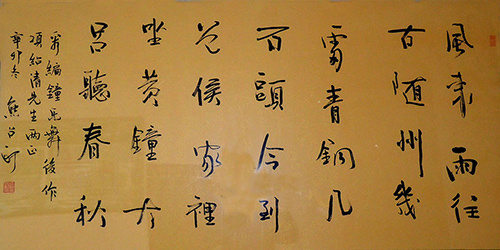 風來雨往
古隨州幾
青銅几
百頭今到
曾侯家裡
坐黃鐘大
呂聽春秋
編鐘樂舞後作
項紹清先生兩正
辛卯冬熊召政